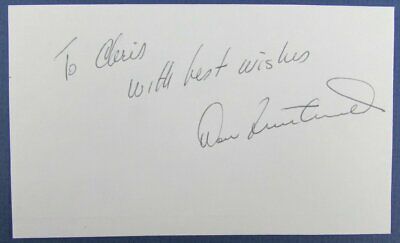 To Chris
with best wishes
Don